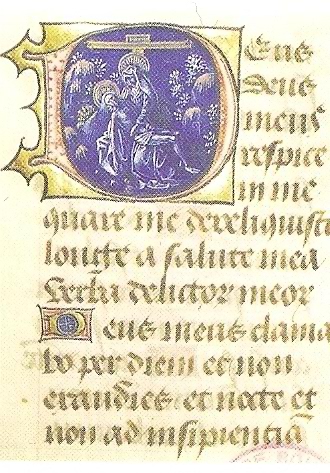 Deus
deus
meus
respice
in me
quare me dereliquisti
longe a salute mea
verba delictor meor
Deus meus clama
bo per diem et non
exaudies et nocte et
non ad insipientiā